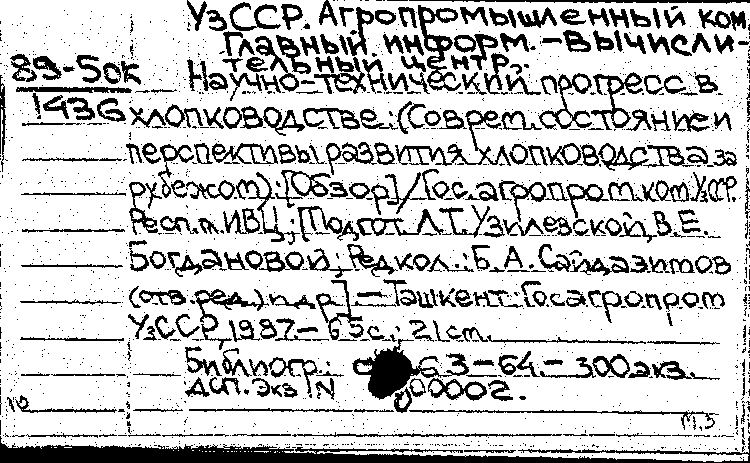 УзССР. Агропромышленный ком.
Главный информ.-вычисли-
тельный центр.
89-5ок
1436
Научно-технический прогресс в
хлопководстве: (Соврем. состояние и
перспективы развития хлопководства за
рубежом): [Обзор]/Гос. агропром. ком. УзССР.
Респ. п. ИВЦ; [Подгот. Л.Т. Узилевской, В.Е.
Богдановой; Редкол.: Б.А. Сайдазимов
(отв. ред.) и др.] — Ташкент: Госагропром
УзССР, 1987. — 65 с.; 21 см.
Библиогр.: с. 63-64. — 300 экз.
ДСП. Экз. N 00002.
М.5